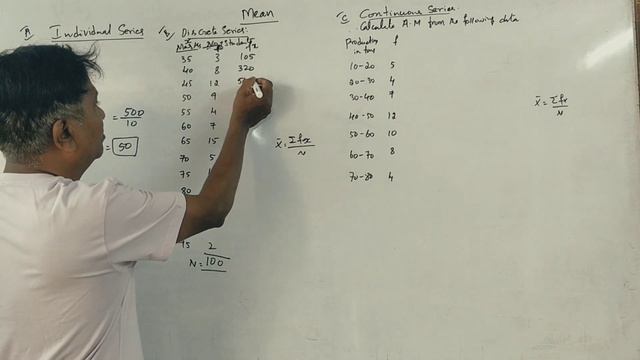 Mean
A) Individual Series
= 500
10
= 50
B) Discrete Series:
Marks No. of Students fx
35 3 105
40 8 320
45 12
50 9
55 4
60 7
65 15
70 5
75
80
2
N = 100
X̄ = Σfx
N
C Continuous Series:
Calculate A.M from the following data
Production f
in tons
10-20 5
20-30 4
30-40 7
40-50 12
50-60 10
60-70 8
70-80 4
X̄ = Σfx
N